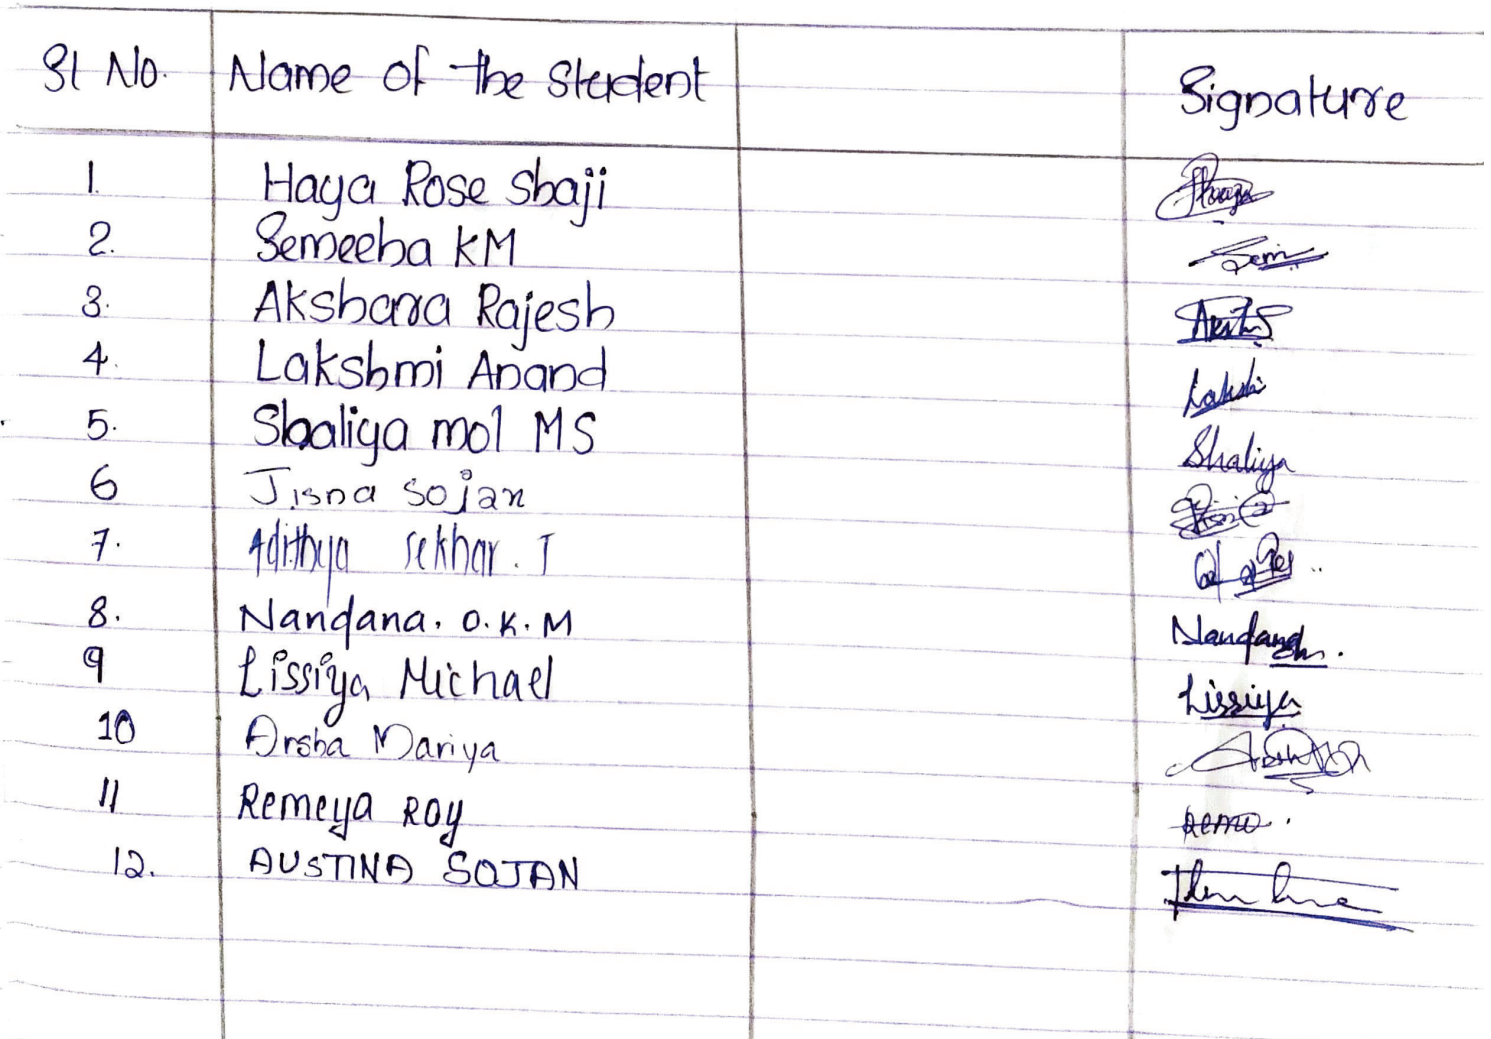 Sl No. Name of the Student Signature
1. Haya Rose Shaji Haaya
2. Semeeha KM Semi
3. Akshara Rajesh
4. Lakshmi Anand Lakshmi
5. Shaliya mol MS Shaliya
6 Jisna sojan
7. Adithya Sekhar. T
8. Nandana. O.K.M Nandana
9 Lissiya Michael Lissiya
10 Arsha Mariya
11 Remeya Roy Remo.
12. AUSTINA SOJAN